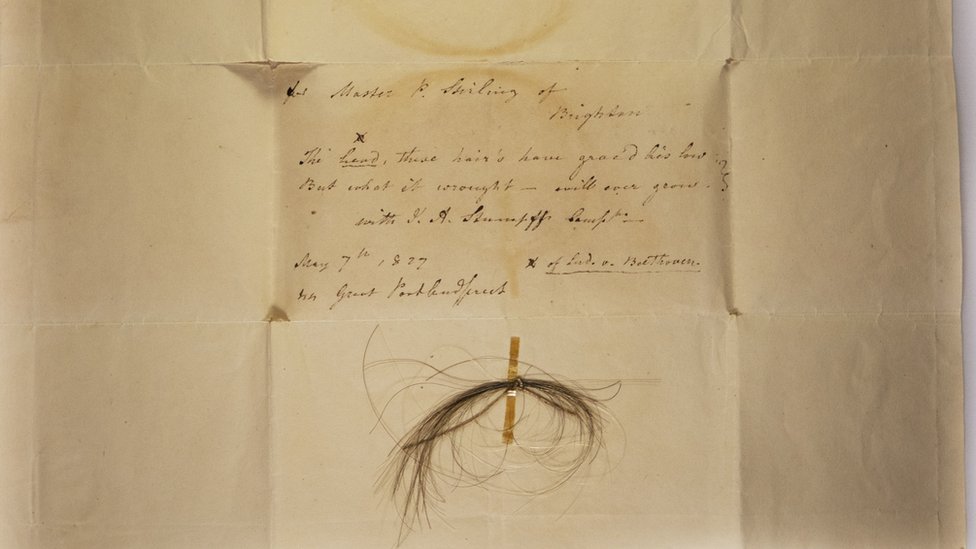 for Master P. Stirling of
Brighton
x
The head, these hair's have grac'd lies low
But what it wrought – will ever grow.
with J. A. Stumpff
May 7th, 1827
x of Lud. v. Beethoven.
Great Portland street